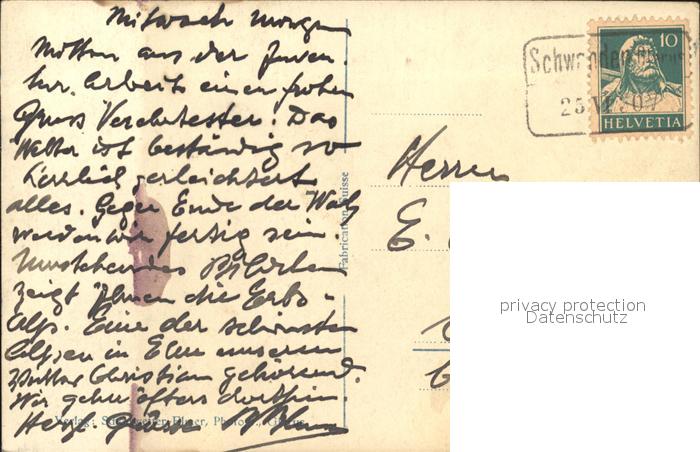 Mittwoch morgen
Mitten aus der
Arbeit einen frohen
Gruss Verehrtester. Das
Wetter ist beständig so
herrlich erleichtert
alles. Gegen Ende der Woche
werden wir fertig sein.
Umstehendes Bildchen
zeigt Ihnen die Erbs-
Alp. Eine der schönsten
Alpen in Elm unserem
Christian gehörend.
Wir gehen öfters dorthin.
Herzl. Grüsse
Fabrication Suisse
Schwanden
25 VI
10
HELVETIA
Herrn
E.
privacy protection
Datenschutz